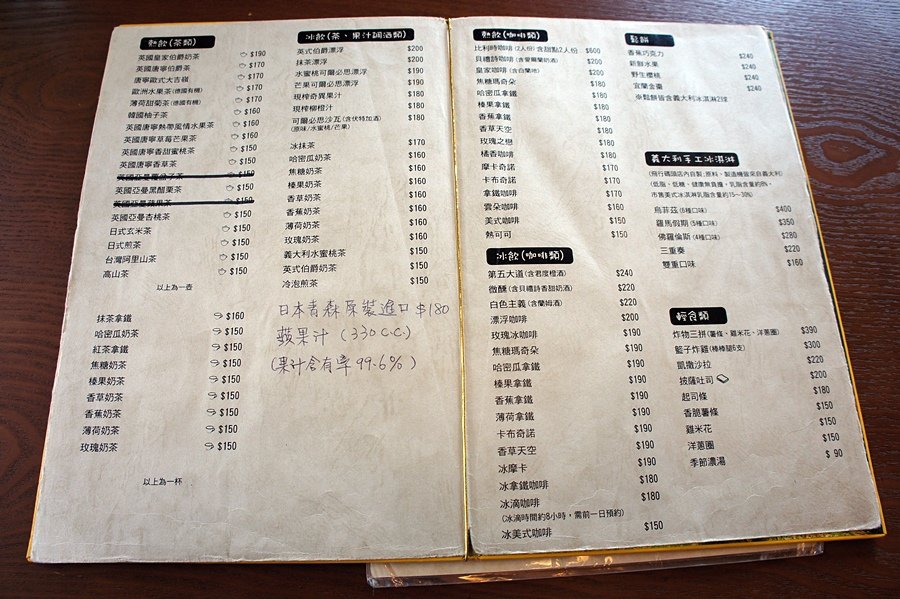 熱飲(茶類)
英國皇家伯爵奶茶 $190
英國唐寧伯爵茶 $170
唐寧歐式大吉嶺 $170
歐洲水果茶(德國有機) $170
薄荷甜菊茶(德國有機) $170
韓國柚子茶 $160
英國唐寧熱帶風情水果茶 $160
英國唐寧草莓芒果茶 $150
英國唐寧香甜蜜桃茶 $150
英國唐寧香草茶 $150
$150
英國亞曼黑醋栗茶 $150
英國亞曼蘋果茶 $150
英國亞曼杏桃茶 $150
日式玄米茶 $150
日式煎茶 $150
台灣阿里山茶 $150
高山茶 $150
以上為一壺
抹茶拿鐵 $160
哈密瓜奶茶 $150
紅茶拿鐵 $150
焦糖奶茶 $150
榛果奶茶 $150
香草奶茶 $150
香蕉奶茶 $150
薄荷奶茶 $150
玫瑰奶茶 $150
以上為一杯
冰飲(茶、果汁調酒類)
英式伯爵漂浮 $200
抹茶漂浮 $200
水蜜桃可爾必思漂浮 $190
芒果可爾必思漂浮 $190
現榨奇異果汁 $180
現榨柳橙汁 $180
可爾必思沙瓦(含伏特加酒) $180
(原味/水蜜桃/芒果)
冰抹茶 $170
哈密瓜奶茶 $160
焦糖奶茶 $150
榛果奶茶 $150
香草奶茶 $150
香蕉奶茶 $150
薄荷奶茶 $150
玫瑰奶茶 $150
義大利水蜜桃茶 $150
英式伯爵奶茶 $150
冷泡煎茶 $150
日本青森原裝進口 $180
蘋果汁 (330 c.c.)
(果汁含有率 99.6%)
熱飲(咖啡類)
比利時咖啡(2人份)含甜點2人份 $600
貝禮詩咖啡(含愛爾蘭奶酒) $200
皇家咖啡(含白蘭地) $200
焦糖瑪奇朵 $180
哈密瓜拿鐵 $180
榛果拿鐵 $180
香蕉拿鐵 $180
香草天空 $180
玫瑰之戀 $180
橘香咖啡 $180
摩卡奇諾 $170
卡布奇諾 $170
拿鐵咖啡 $170
雲朵咖啡 $160
美式咖啡 $150
熱可可 $150
冰飲(咖啡類)
第五大道(含君度橙酒) $240
微醺(含貝禮詩香甜奶酒) $220
白色主義(含蘭姆酒) $220
漂浮咖啡 $200
玫瑰冰咖啡 $190
焦糖瑪奇朵 $190
哈密瓜拿鐵 $190
榛果拿鐵 $190
香蕉拿鐵 $190
薄荷拿鐵 $190
卡布奇諾 $190
香草天空 $190
冰摩卡 $190
冰拿鐵咖啡 $180
冰滴咖啡 $180
(冰滴時間約8小時，需前一日預約)
冰美式咖啡 $150
鬆餅
香蕉巧克力 $240
新鮮水果 $240
野生櫻桃 $240
宜蘭金棗 $240
※鬆餅皆含義大利冰淇淋2球
義大利手工冰淇淋
(飛行碼頭店內自製；原料、製造機皆來自義大利)
(低脂、低糖、健康無負擔，乳脂含量約8%，
市售美式冰淇淋乳脂含量約15～30%)
烏菲茲(6種口味) $400
羅馬假期(5種口味) $350
佛羅倫斯(4種口味) $280
三重奏 $220
雙重口味 $160
輕食類
炸物三拼(薯條、雞米花、洋蔥圈) $390
籃子炸雞(棒棒腿6支) $300
凱撒沙拉 $220
披薩吐司 $200
起司條 $180
香脆薯條 $150
雞米花 $150
洋蔥圈 $150
季節濃湯 $ 90